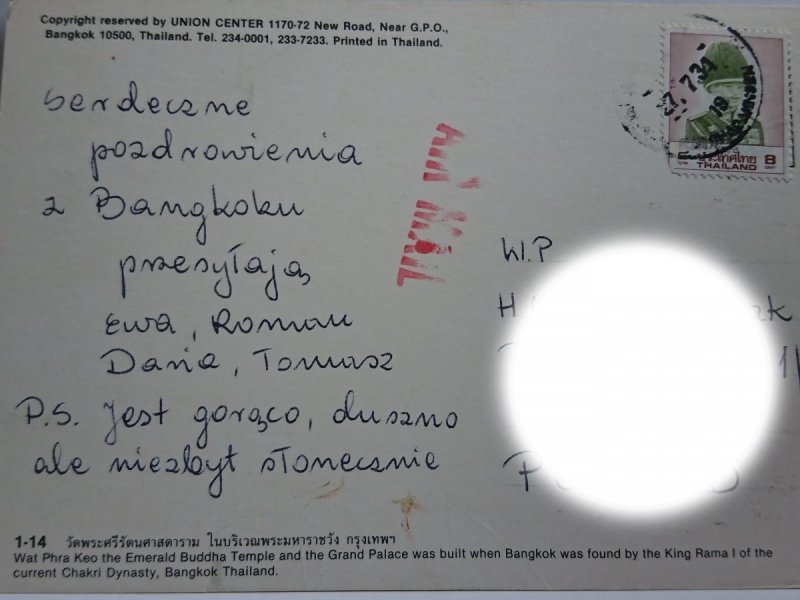 Copyright reserved by UNION CENTER 1170-72 New Road, Near G.P.O.,
Bangkok 10500, Thailand. Tel. 234-0001, 233-7233. Printed in Thailand.
Serdeczne
pozdrowienia
z Bangkoku
przesyłają
Ewa, Roman
Daria, Tomasz
P.S. Jest gorąco, duszno
ale niezbyt słonecznie
AIR MAIL
ประเทศไทย 8
THAILAND
W.P
1-14 วัดพระศรีรัตนศาสดาราม ในบริเวณพระมหาราชวัง กรุงเทพฯ
Wat Phra Keo the Emerald Buddha Temple and the Grand Palace was built when Bangkok was found by the King Rama I of the
current Chakri Dynasty, Bangkok Thailand.